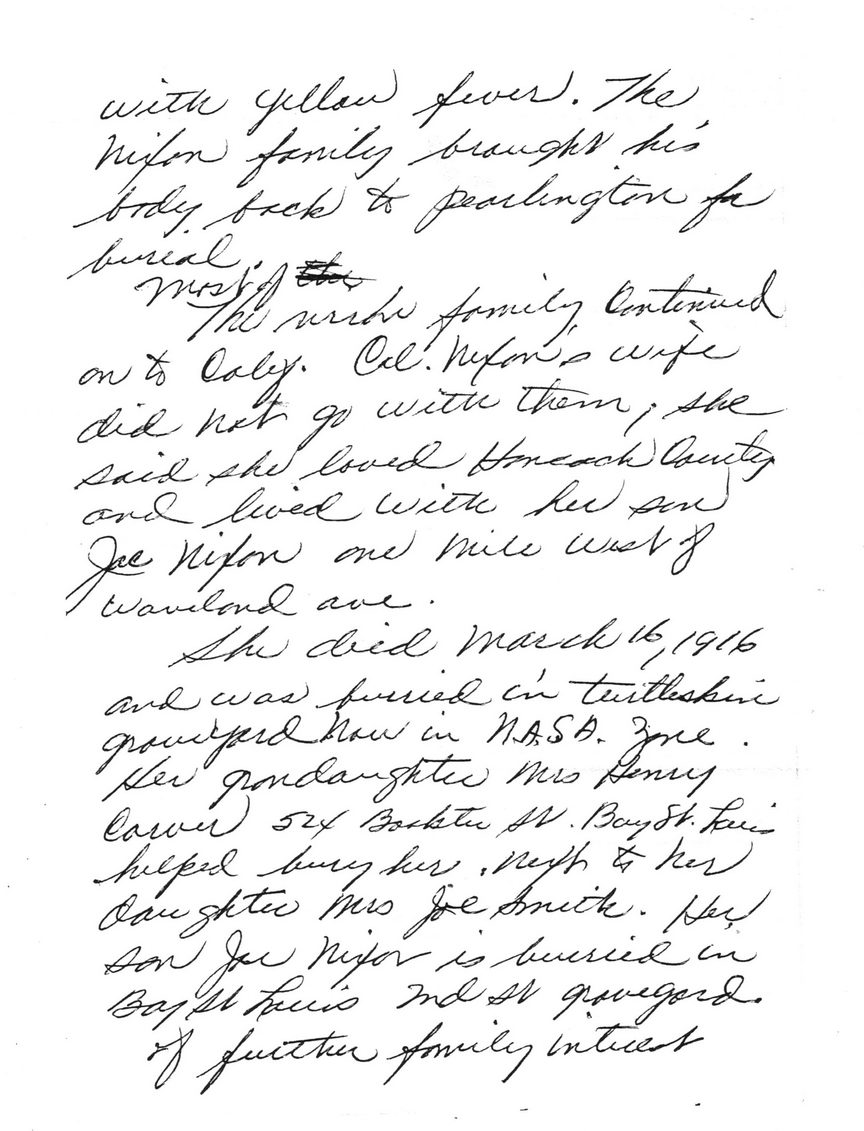 with yellow fever. The
Nixon family brought his
body back to Pearlington for
burial.
Most of
The whole family Continued
on to Calif. Col. Nixon's wife
did not go with them; she
said she loved Hancock County
and lived with her son
Joe Nixon one mile west of
Waveland ave.
She died March 16, 1916
and was burried in turtleskin
graveyard now in N.A.S.A. Zone.
Her grondaughter Mrs Henry
Carver 524 St. Bay St. Louis
helped bury her. next to her
daughter Mrs Joe Smith. Her
son Joe Nixon is burried in
Bay St Louis 2nd St graveyard.
of further family interest